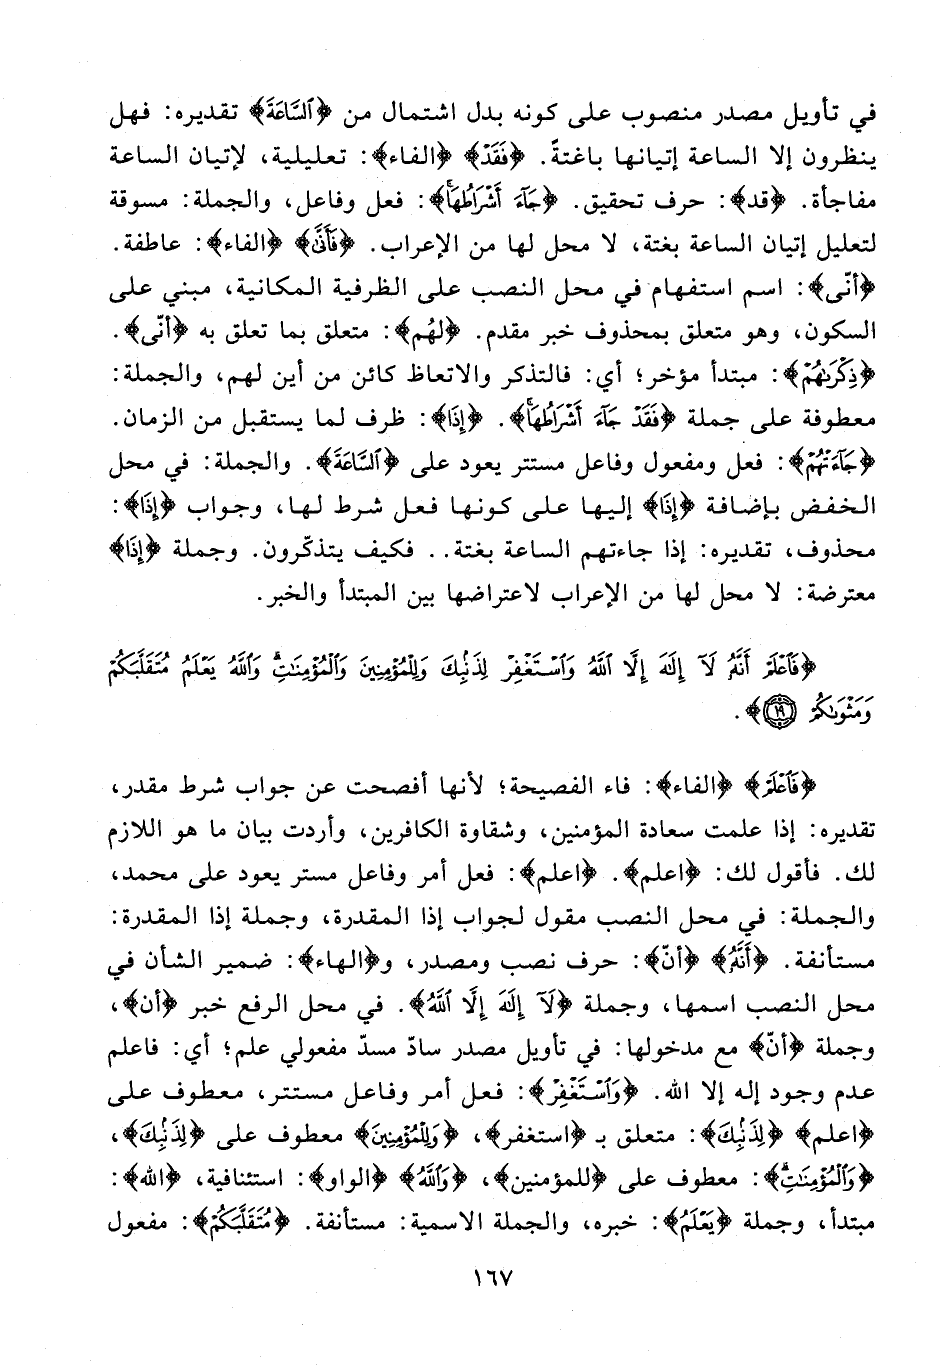 في تأويل مصدر منصوب على كونه بدل اشتمال من ﴿ٱلسَّاعَةَ﴾ تقديره: فهل
ينظرون إلا الساعة إتيانها باغتةً. ﴿فَقَدْ﴾ ﴿الفاء﴾: تعليلية، لإتيان الساعة
مفاجأة. ﴿قد﴾: حرف تحقيق. ﴿جَآءَ أَشْرَاطُهَا﴾: فعل وفاعل، والجملة: مسوقة
لتعليل إتيان الساعة بغتة، لا محل لها من الإعراب. ﴿فَأَنَّىٰ﴾ ﴿الفاء﴾: عاطفة.
﴿أنّى﴾: اسم استفهام في محل النصب على الظرفية المكانية، مبني على
السكون، وهو متعلق بمحذوف خبر مقدم. ﴿لهُم﴾: متعلق بما تعلق به ﴿أنّى﴾.
﴿ذِكْرَىٰهُمْ﴾: مبتدأ مؤخر؛ أي: فالتذكر والاتعاظ كائن من أين لهم، والجملة:
معطوفة على جملة ﴿فَقَدْ جَآءَ أَشْرَاطُهَا﴾. ﴿إِذَا﴾: ظرف لما يستقبل من الزمان.
﴿جَآءَتْهُمْ﴾: فعل ومفعول وفاعل مستتر يعود على ﴿ٱلسَّاعَةَ﴾. والجملة: في محل
الخفض بإضافة ﴿إِذَا﴾ إليها على كونها فعل شرط لها، وجواب ﴿إِذَا﴾:
محذوف، تقديره: إذا جاءتهم الساعة بغتة.. فكيف يتذكّرون. وجملة ﴿إِذَا﴾
معترضة: لا محل لها من الإعراب لاعتراضها بين المبتدأ والخبر.
﴿فَٱعْلَمْ أَنَّهُۥ لَآ إِلَٰهَ إِلَّا ٱللَّهُ وَٱسْتَغْفِرْ لِذَنۢبِكَ وَلِلْمُؤْمِنِينَ وَٱلْمُؤْمِنَٰتِۗ وَٱللَّهُ يَعْلَمُ مُتَقَلَّبَكُمْ
وَمَثْوَىٰكُمْ ١٩﴾.
﴿فَٱعْلَمْ﴾ ﴿الفاء﴾: فاء الفصيحة؛ لأنها أفصحت عن جواب شرط مقدر،
تقديره: إذا علمت سعادة المؤمنين، وشقاوة الكافرين، وأردت بيان ما هو اللازم
لك. فأقول لك: ﴿اعلم﴾. ﴿اعلم﴾: فعل أمر وفاعل مستر يعود على محمد،
والجملة: في محل النصب مقول لجواب إذا المقدرة، وجملة إذا المقدرة:
مستأنفة. ﴿أَنَّهُۥ﴾ ﴿أنّ﴾: حرف نصب ومصدر، و﴿الهاء﴾: ضمير الشأن في
محل النصب اسمها، وجملة ﴿لَآ إِلَٰهَ إِلَّا ٱللَّهُ﴾. في محل الرفع خبر ﴿أن﴾،
وجملة ﴿أنّ﴾ مع مدخولها: في تأويل مصدر سادّ مسدّ مفعولي علم؛ أي: فاعلم
عدم وجود إله إلا الله. ﴿وَٱسْتَغْفِرْ﴾: فعل أمر وفاعل مستتر، معطوف على
﴿اعلم﴾ ﴿لِذَنۢبِكَ﴾: متعلق بـ ﴿استغفر﴾، ﴿وَلِلْمُؤْمِنِينَ﴾ معطوف على ﴿لِذَنۢبِكَ﴾،
﴿وَٱلْمُؤْمِنَٰتِۗ﴾: معطوف على ﴿للمؤمنين﴾، ﴿وَٱللَّهُ﴾ ﴿الواو﴾: استئنافية، ﴿الله﴾:
مبتدأ، وجملة ﴿يَعْلَمُ﴾: خبره، والجملة الاسمية: مستأنفة. ﴿مُتَقَلَّبَكُمْ﴾: مفعول
١٦٧